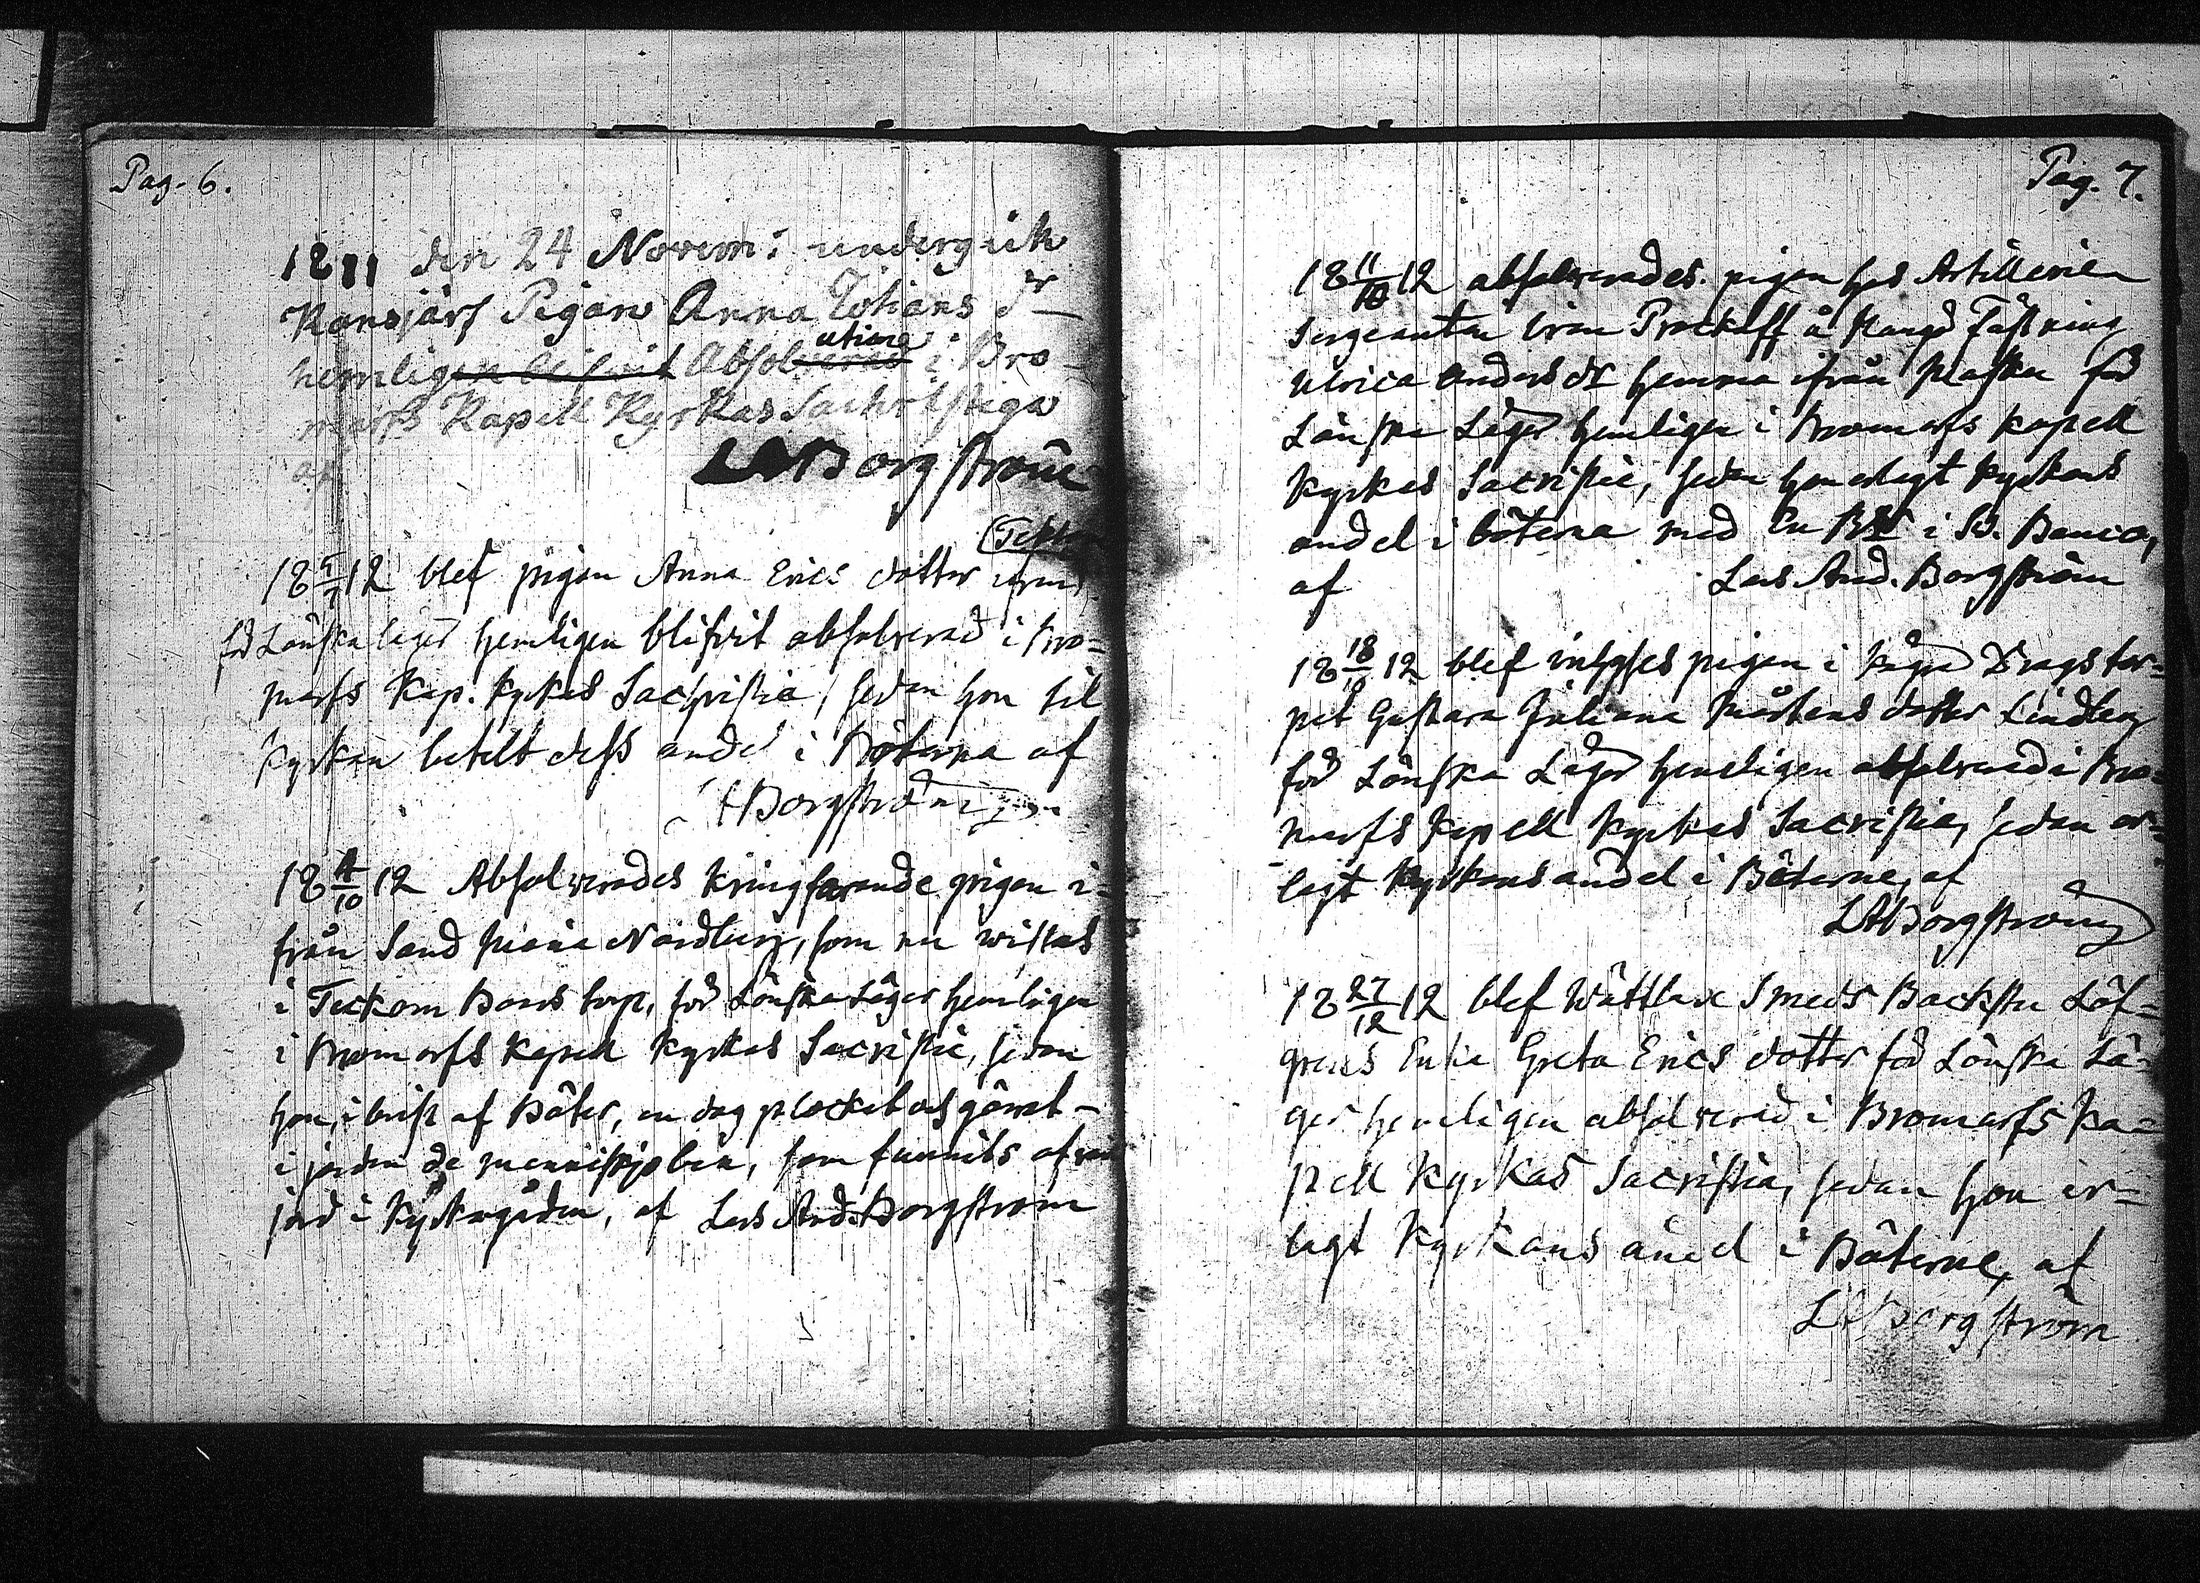 Pag. 6.
1811 den 24 Novem: undergick
Kansjärf Pigan Anna Johans dr
hemligen blifvit Absolverad utions i Bro-
marfs Kapell Kyrkas Sachristiga
af LABorgström
18 5/7 12 blef pigan Anna Erics dotter ifrån (Teckt
för Lönska läger hemligen blifvit absolverad i Bro-
marfs Kap. Kyrkas Sachristia, sedan hon til
Kyrkan betalt dess andel i Böterna af
LABorgström
18 4/10 12 Absolverades kringfarande pigan i-
från Sand Maria Nordberg, som nu wistas
i Teckom Boas torp, för Lönska Läger hemligen
i Bromarfs Kapell Kyrkas Sacristia, sedan
hon, i brist af Böter, en dag plockat och gömt
i jorden de menniskjoben, som funnits ofvan
jord i Kyrkogården, af Lars And. Borgström
Pag. 7.
18 11/10 12 absolverades pigan hos Artilleries
Sergeanten Ivan Prockoff å Hangö Fästning
Ulrica Anders dr hemma ifrån Masku för
Lönska Läger hemligen i Bromarfs Kapell
Kyrkas Sacristia, sedan hon erlagt Kyrkans
andel i böterna med En Rd i S. Banco,
af Lars And. Borgström
18 18/11 12 blef inhyses pigan i Dragstor-
pet Gustava Juliana Mårtens dotter Lindberg
för Lönska Läger hemligen absolverad i Bro-
marfs Kapell Kyrkas Sacristia, sedan er-
lagt Kyrkans andel i Böterne, af
LABorgström
18 27/12 12 blef Wättlax Smeds Backstu Löf-
grens Enka Greta Erics dotter för Lönska Lä-
ger hemligen absolverad i Bromarfs Ka-
pell Kyrkas Sacristia, sedan hon er-
lagt Kyrkans andel i Böterne, af
LABorgström